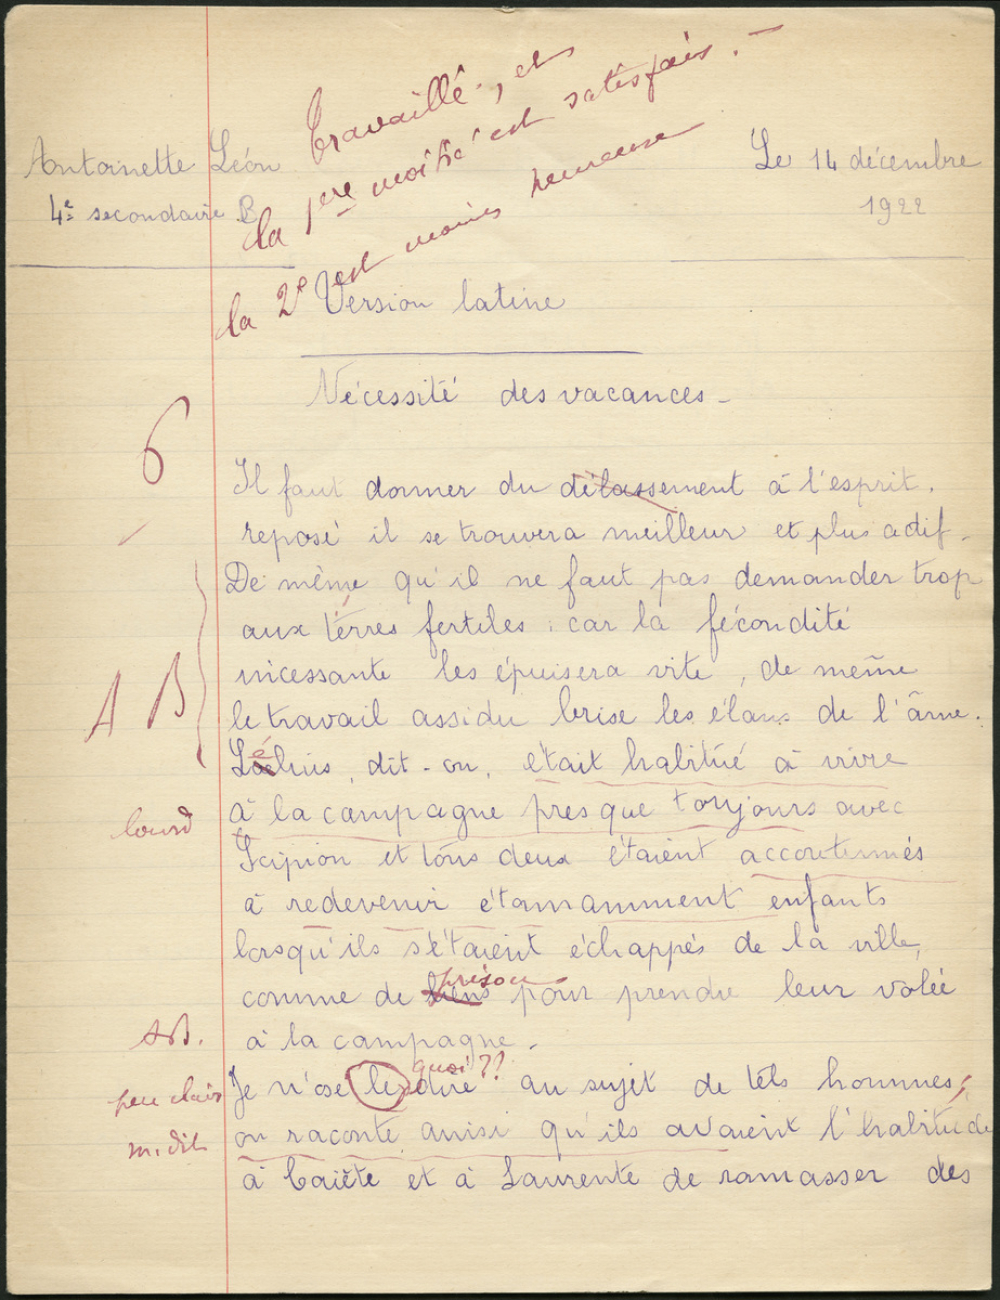 Travaillé, et
la 1ère moitié est satisfais. —
la 2e est moins heureuse
Antoinette Léon
4e secondaire B
Le 14 décembre
1922
Version latine
Nécessité des vacances -
6
Il faut donner du délassement à l'esprit.
reposé il se trouvera meilleur et plus actif.
De même qu'il ne faut pas demander trop
aux terres fertiles : car la fécondité
incessante les épuisera vite, de même
le travail assidu brise les élans de l'âme.
AB
Lélius, dit-on, était habitué à vivre
à la campagne presque toujours avec
lourd
Scipion et tous deux étaient accoutumés
à redevenir étonnamment enfants
lorsqu'ils s'étaient échappés de la ville,
prison
comme de liens pour prendre leur volée
à la campagne.
AB.
quoi ??
Je n'ose le dire au sujet de tels hommes,
peu clair
on raconte ainsi qu'ils avaient l'habitude
m. dit
à Caiète et à Laurente de ramasser des